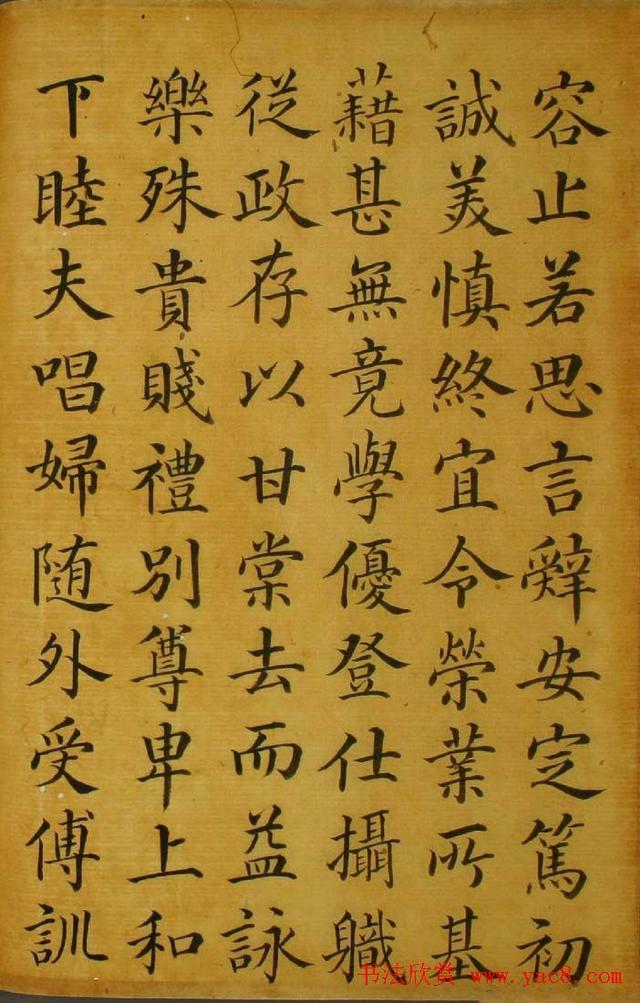 容止若思言辤安定篤初
誠美慎終宜令榮業所基
藉甚無竟學優登仕攝職
從政存以甘棠去而益詠
樂殊貴賤禮別尊卑上和
下睦夫唱婦随外受傅訓
书法欣赏·www.yac8.com